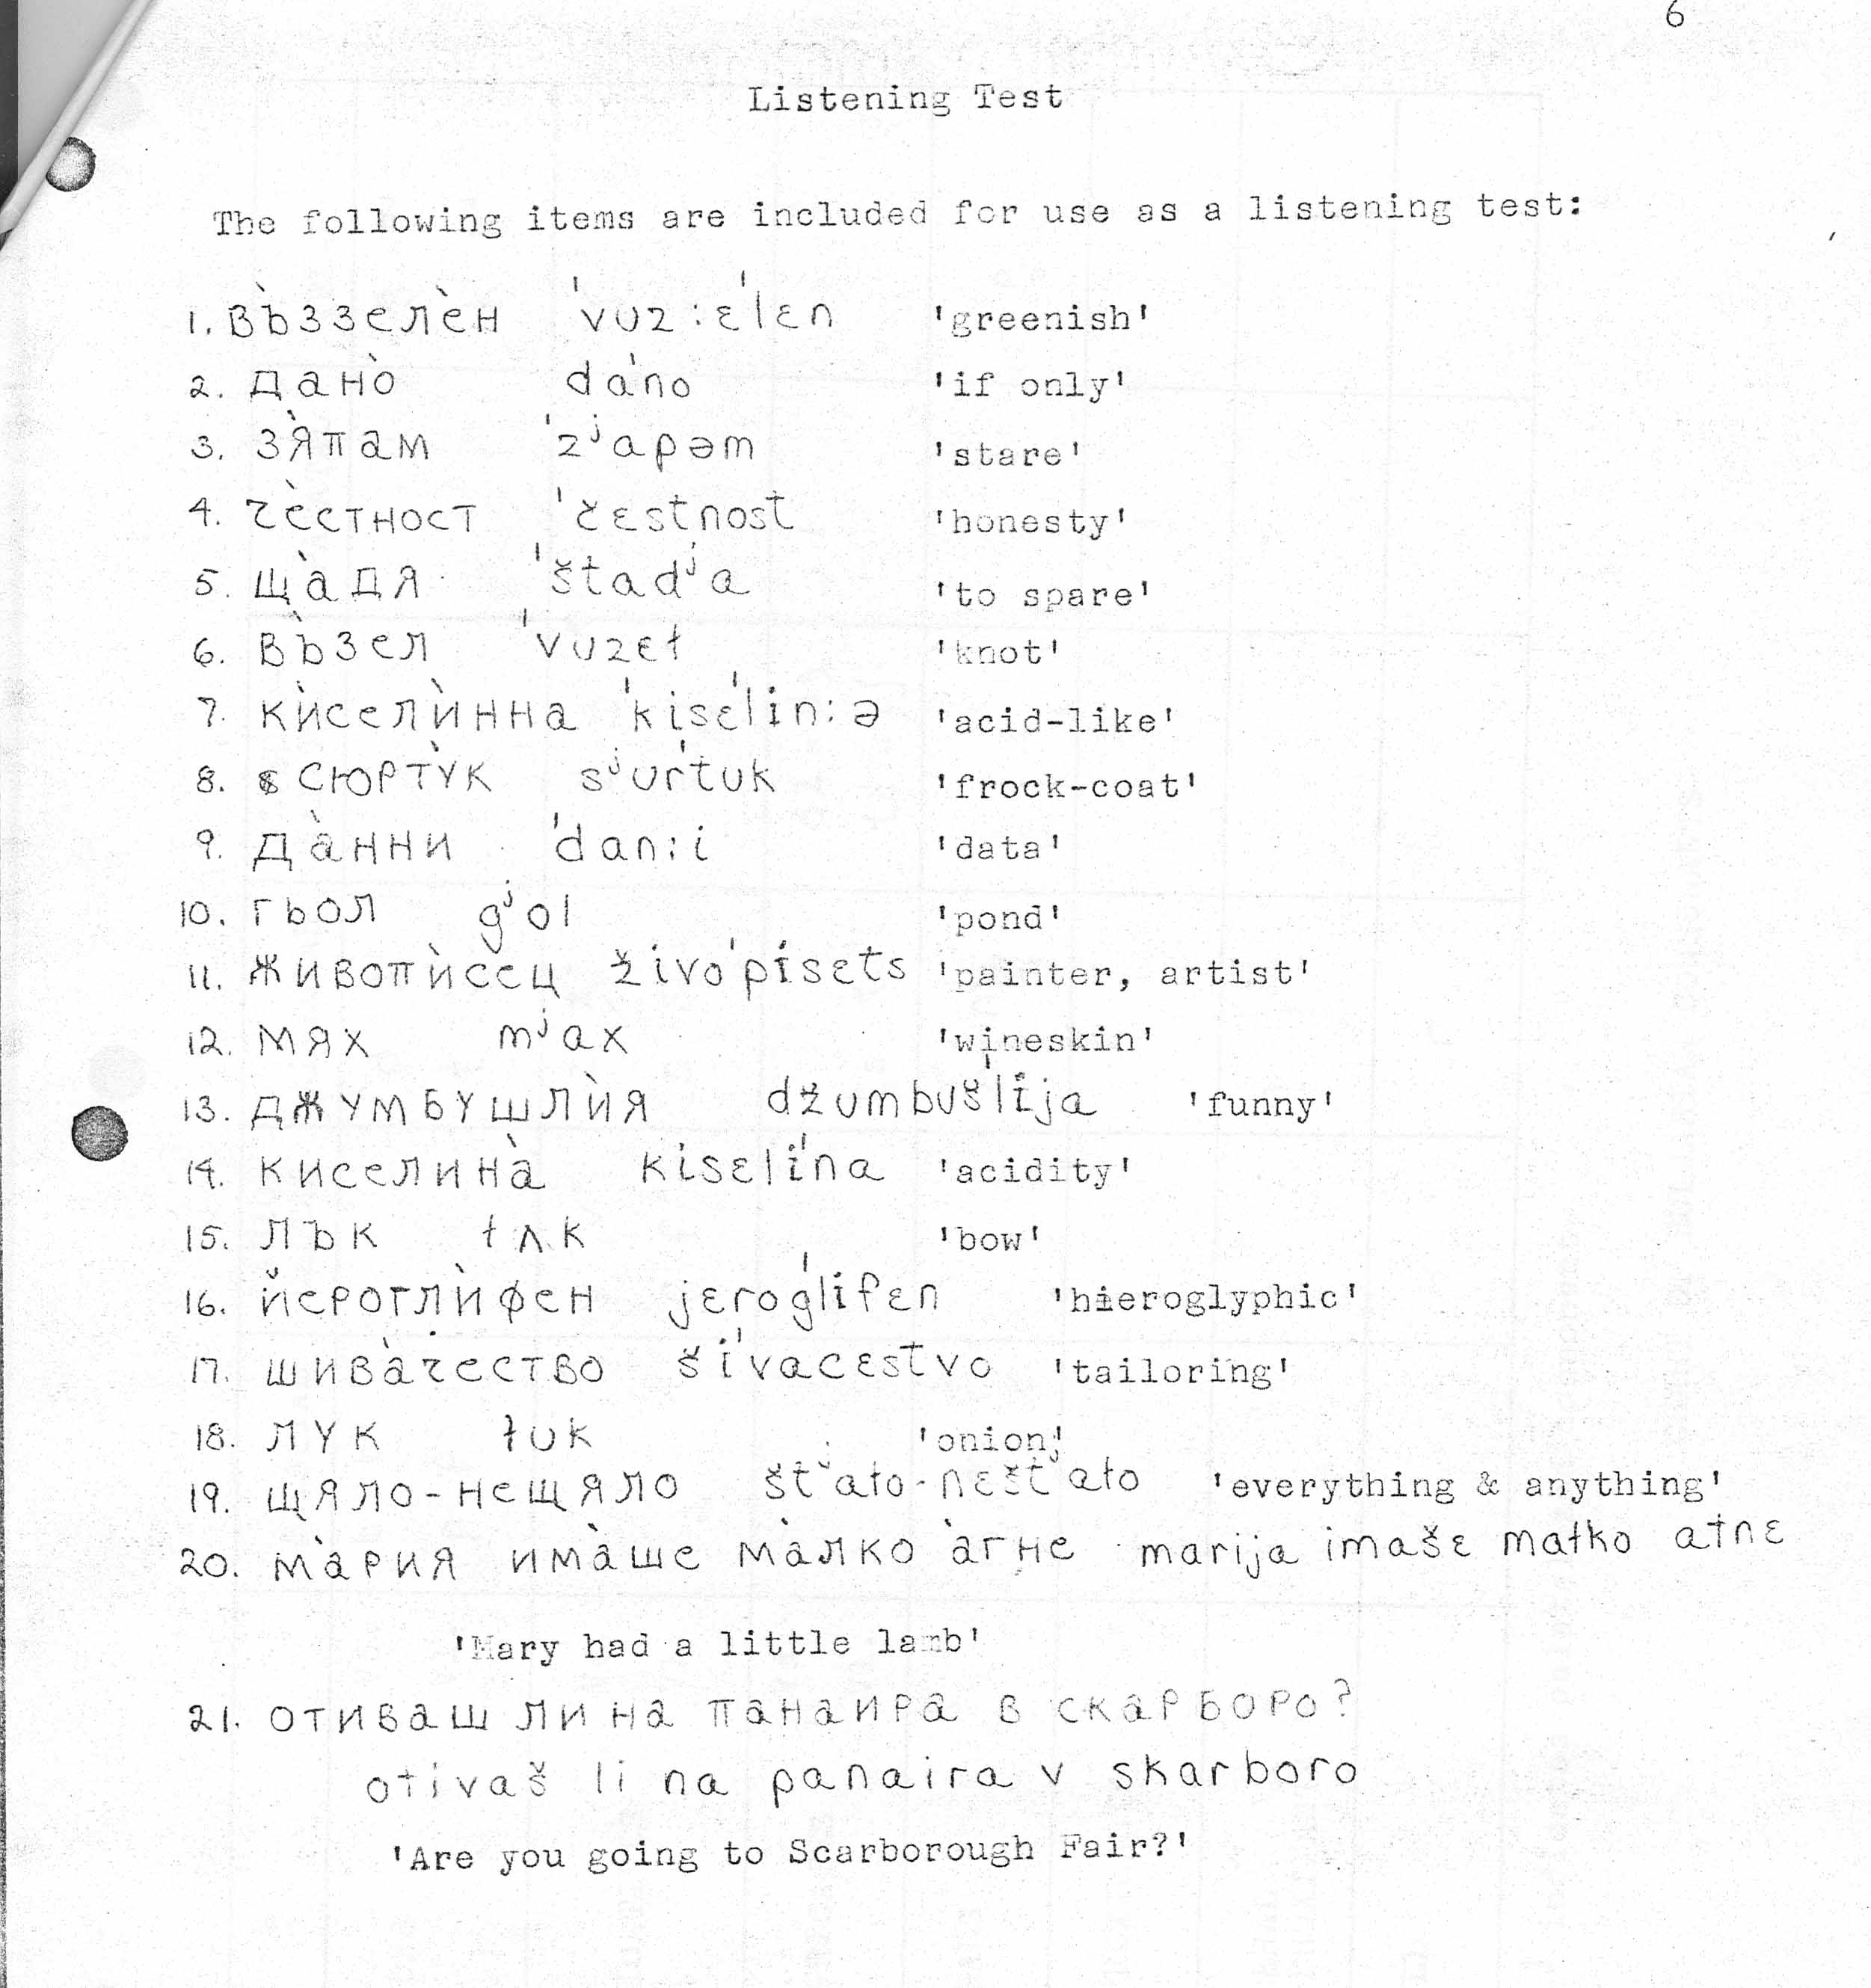 6
Listening Test
The following items are included for use as a listening test:
1. въ̀ззелѐн ˈvuz:ɛˈlɛn 'greenish'
2. дано̀ daˈno 'if only'
3. зя̀пам ˈzʲapəm 'stare'
4. чѐстност ˈčɛstnost 'honesty'
5. ща̀дя ˈštadʲa 'to spare'
6. въ̀зел ˈvuzɛł 'knot'
7. кѝселѝнна ˈkisɛˈlin:ə 'acid-like'
8. сюрту̀к sʲurˈtuk 'frock-coat'
9. да̀нни ˈdan:i 'data'
10. гьол gʲol 'pond'
11. живопѝсец živoˈpisɛts 'painter, artist'
12. мях mʲax 'wineskin'
13. джумбушлѝя džumbušˈlija 'funny'
14. киселина̀ kisɛliˈna 'acidity'
15. лък łʌk 'bow'
16. йероглѝфен jɛrogˈlifɛn 'hieroglyphic'
17. шива̀чество šiˈvacɛstvo 'tailoring'
18. лук łuk 'onion'
19. щяло-нещяло štʲało-nɛštʲało 'everything & anything'
20. ма̀рия има̀ше ма̀лко а̀гне marija imašɛ małko atnɛ
'Mary had a little lamb'
21. отиваш ли на панаира в скарборо?
otivaš li na panaira v skarboro
'Are you going to Scarborough Fair?'